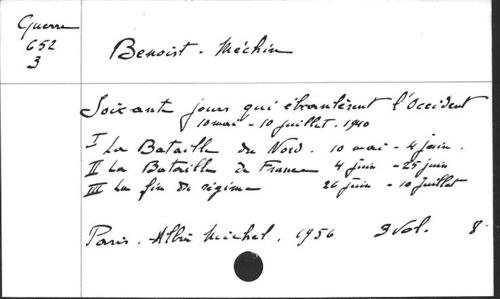 Guerre
652
3
Benoist-Méchin
Soixante jours qui ébranlèrent l'Occident
10 mai - 10 juillet. 1940
I La Bataille du Nord. 10 mai - 4 juin.
II La Bataille de France 4 juin - 25 juin
III La fin du régime 26 juin - 10 juillet
Paris. Albin Michel. 1956 3 Vol. 8°